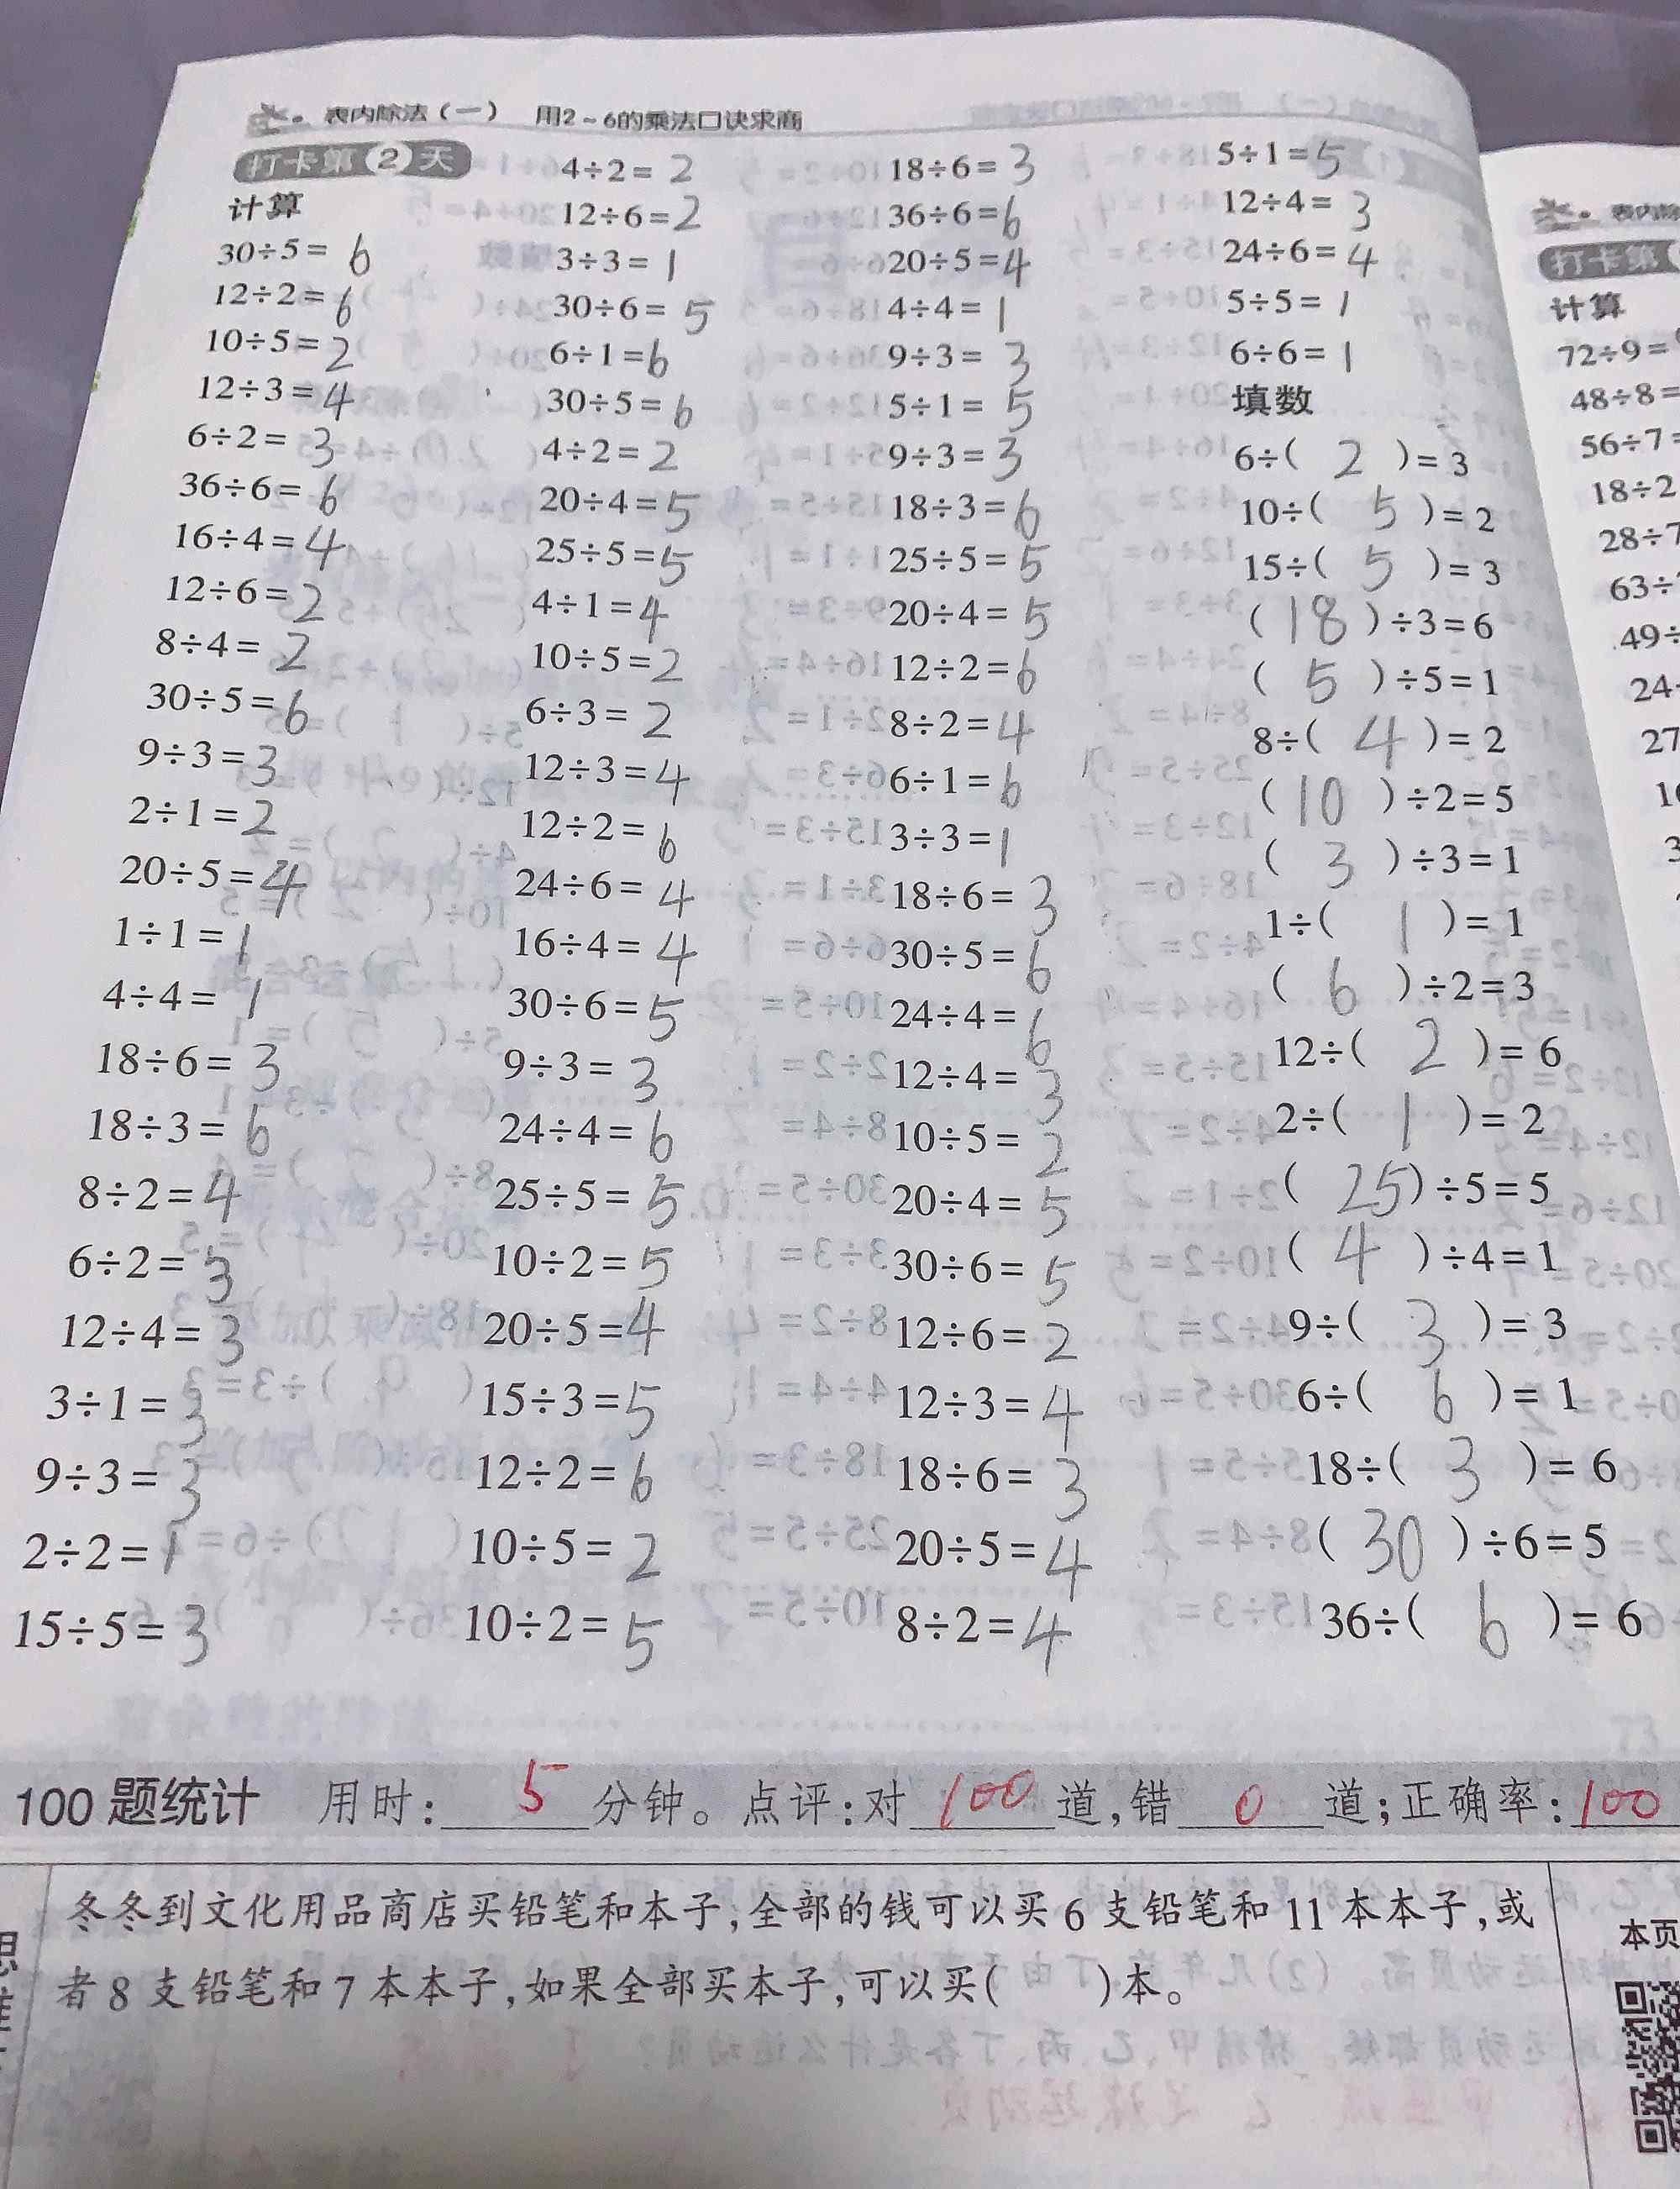 表内除法（一） 用2~6的乘法口诀求商
打卡第2天
计算
30÷5=6
12÷2=6
10÷5=2
12÷3=4
6÷2=3
36÷6=6
16÷4=4
12÷6=2
8÷4=2
30÷5=6
9÷3=3
2÷1=2
20÷5=4
1÷1=1
4÷4=1
18÷6=3
18÷3=6
8÷2=4
6÷2=3
12÷4=3
3÷1=3
9÷3=3
2÷2=1
15÷5=3
4÷2=2
12÷6=2
3÷3=1
30÷6=5
6÷1=6
30÷5=6
4÷2=2
20÷4=5
25÷5=5
4÷1=4
10÷5=2
6÷3=2
12÷3=4
12÷2=6
24÷6=4
16÷4=4
30÷6=5
9÷3=3
24÷4=6
25÷5=5
10÷2=5
20÷5=4
15÷3=5
12÷2=6
10÷5=2
10÷2=5
18÷6=3
36÷6=6
20÷5=4
4÷4=1
9÷3=3
5÷1=5
9÷3=3
18÷3=6
25÷5=5
20÷4=5
12÷2=6
8÷2=4
6÷1=6
3÷3=1
18÷6=3
30÷5=6
24÷4=6
12÷4=3
10÷5=2
20÷4=5
30÷6=5
12÷6=2
12÷3=4
18÷6=3
20÷5=4
8÷2=4
5÷1=5
12÷4=3
24÷6=4
5÷5=1
6÷6=1
填数
6÷(2)=3
10÷(5)=2
15÷(5)=3
(18)÷3=6
(5)÷5=1
8÷(4)=2
(10)÷2=5
(3)÷3=1
1÷(1)=1
(6)÷2=3
12÷(2)=6
2÷(1)=2
(25)÷5=5
(4)÷4=1
9÷(3)=3
6÷(6)=1
18÷(3)=6
(30)÷6=5
36÷(6)=6
100题统计 用时：5分钟。点评：对100道，错0道；正确率：100
冬冬到文化用品商店买铅笔和本子，全部的钱可以买6支铅笔和11本本子，或
者8支铅笔和7本本子，如果全部买本子，可以买( )本。
本页
打卡第
计算
72÷9=
48÷8=
56÷7=
18÷2
28÷7
63÷
49÷
24
27